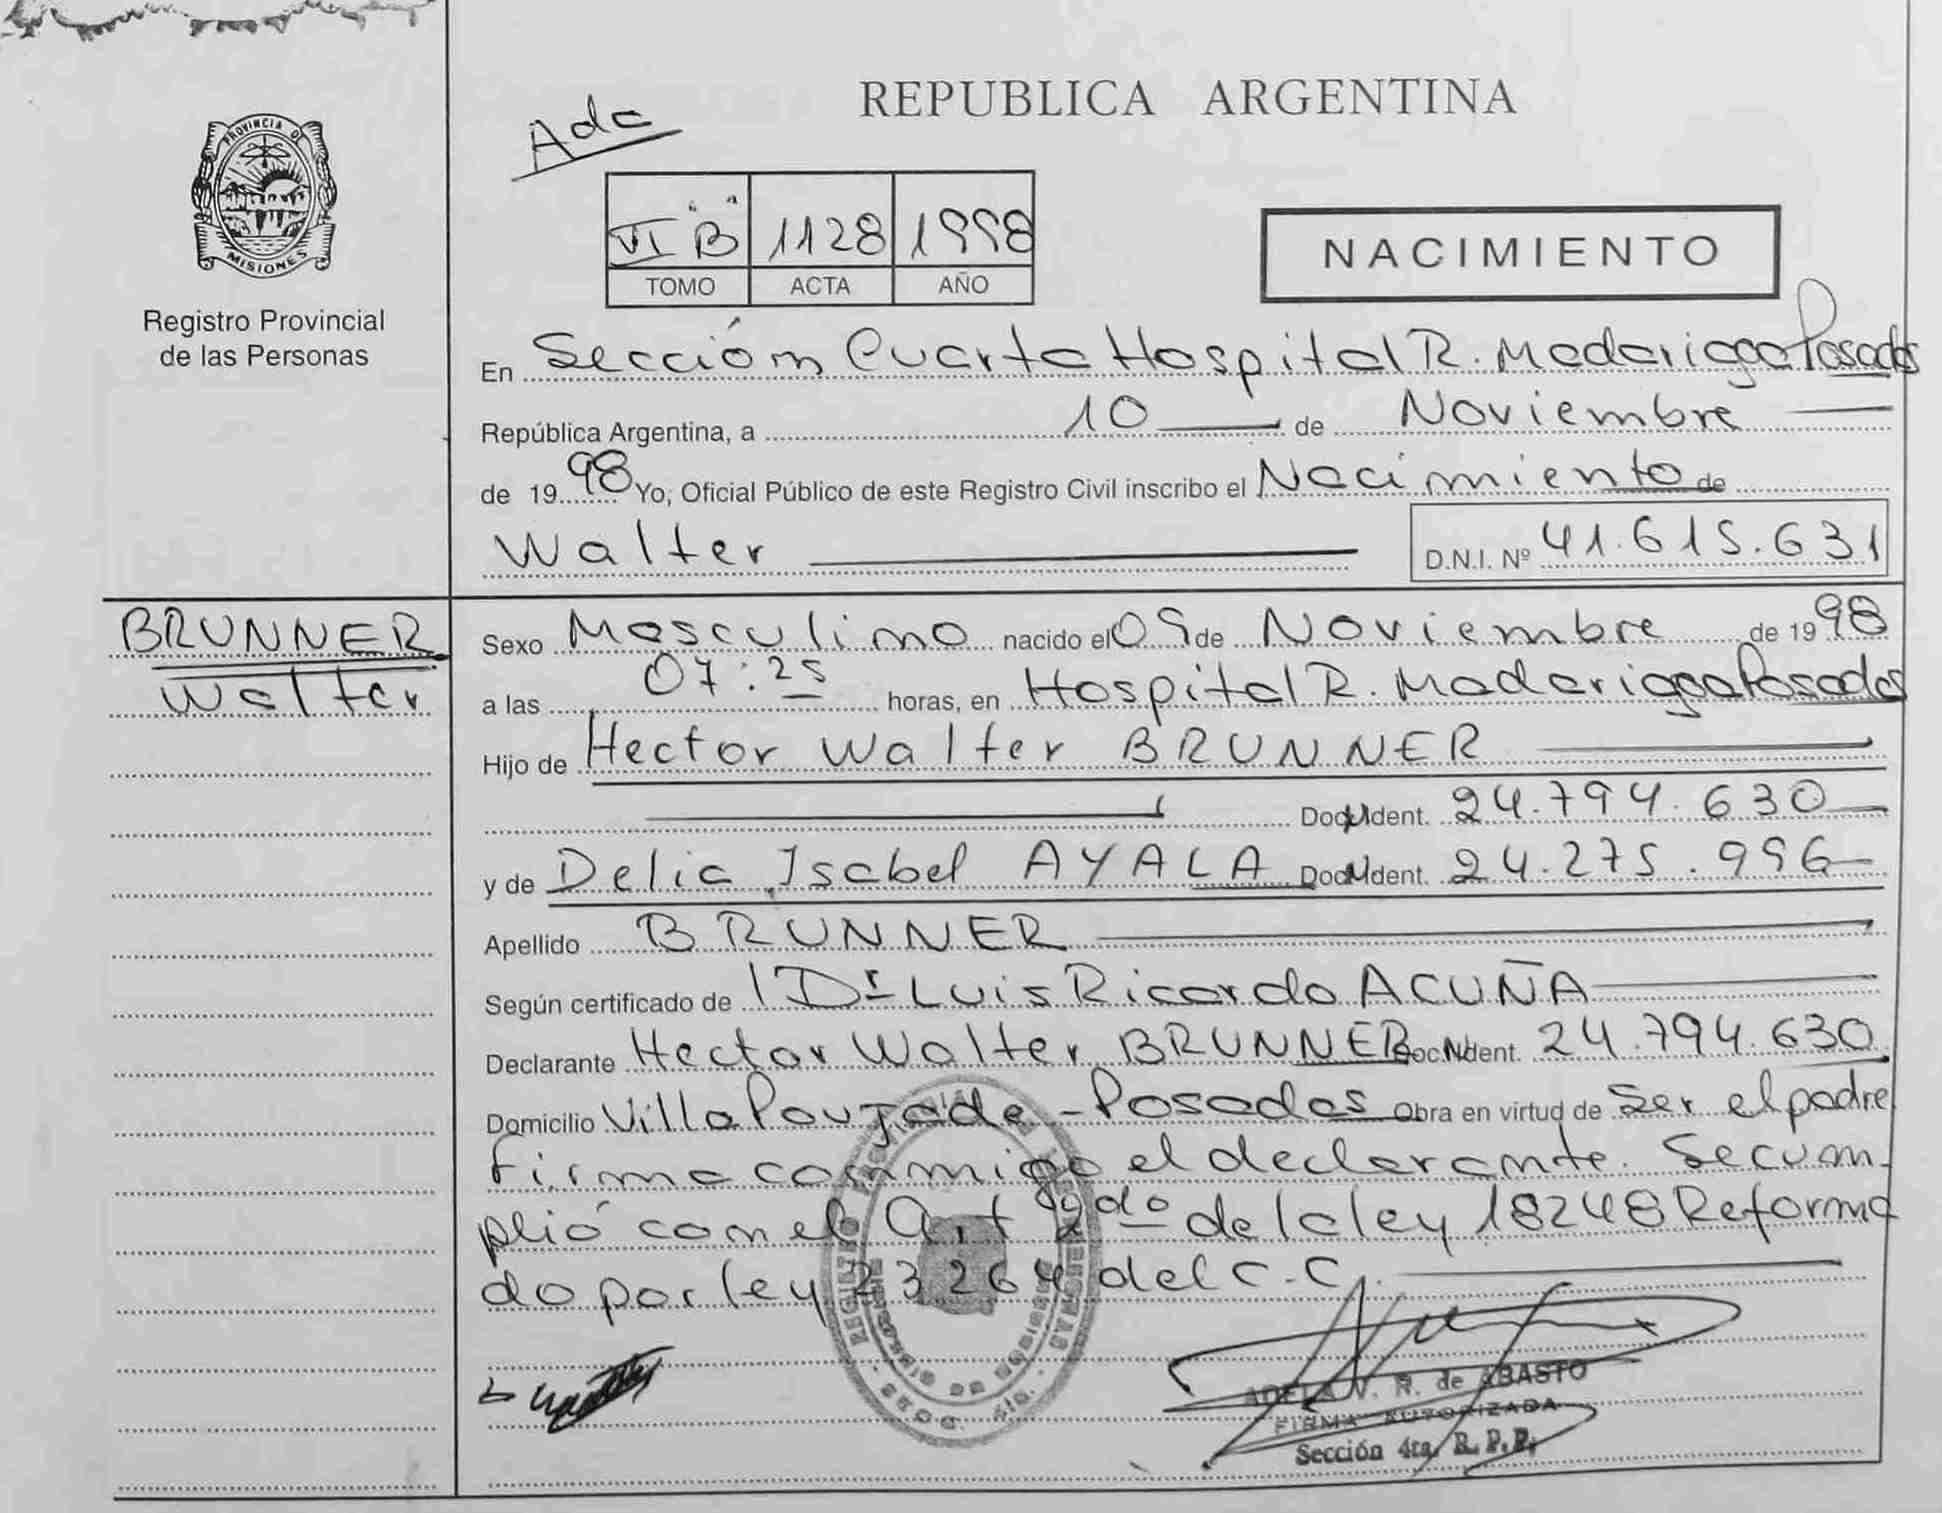 PROVINCIA DE
MISIONES
Registro Provincial
de las Personas
REPUBLICA ARGENTINA
Ada
VI "B" 1128 1998
TOMO ACTA AÑO
NACIMIENTO
En Sección Cuarta Hospital R. Madariaga Posadas
República Argentina, a 10 de Noviembre
de 1998 Yo, Oficial Público de este Registro Civil inscribo el Nacimiento de
Walter D.N.I. Nº 41.615.631
BRUNNER
Walter
Sexo Masculino nacido el 09 de Noviembre de 1998
a las 07:25 horas, en Hospital R. Madariaga Posadas
Hijo de Hector Walter BRUNNER
Doc. Ident. 24.794.630
y de Delia Isabel AYALA Doc. Ident. 24.275.996
Apellido BRUNNER
Según certificado de Dr Luis Ricardo ACUÑA
Declarante Hector Walter BRUNNER Doc. Ident. 24.794.630
Domicilio Villa Poujade - Posadas Obra en virtud de Ser el padre
firma conmigo el declarante. Se cum-
plió con el Art 2do de la ley 18248 Reforma
do por ley 23264 del C.C.
ADELA V. R. de ABASTO
FIRMA AUTORIZADA
Sección 4ta. R. P. P.